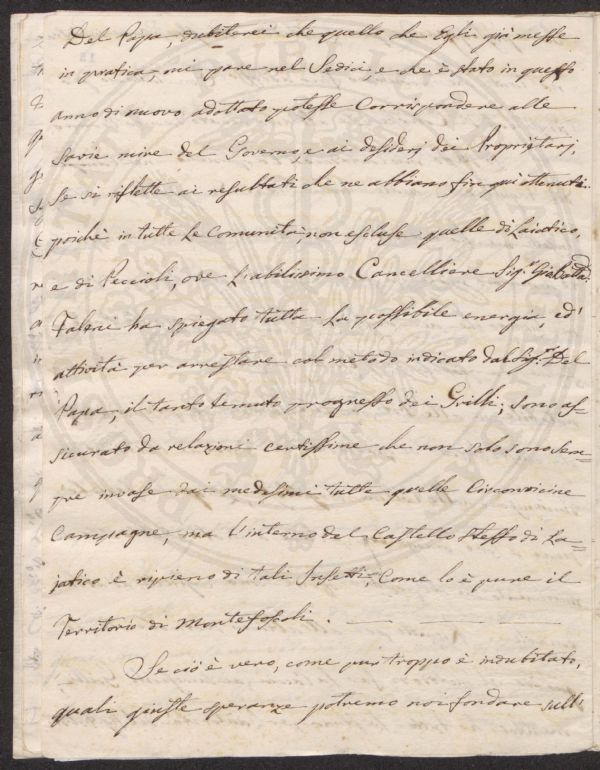 Del Papa, dubiterei che quello che Egli già messe
in pratica, mi pare nel Sedici, e che è stato in questo
anno di nuovo adottato potesse corrispondere alle
savie mire del Governo, e ai desiderj dei Proprietarj,
se si riflette ai resultati che ne abbiamo fin qui ottenuti:
poichè in tutte le Comunità, non escluse quelle di Laiatico,
e di Peccioli, ove l'abilissimo Cancelliere Sig.r Gio: Batta
Faleri ha spiegato tutta la possibile energia, ed
attività per arrestare col metodo indicato dal Sig.r Del
Papa, il tanto temuto progresso dei Grilli; sono as=
sicurato da relazioni certissime che non solo sono sem=
pre invase dai medesimi tutte quelle Circonvicine
Campagne, ma l'interno del Castello stesso di La=
jatico è ripieno di tali Insetti, Come lo è pure il
Territorio di Montefoscoli.
Se ciò è vero, come pur troppo è indubitato,
quali giuste speranze potremo noi fondare sull'